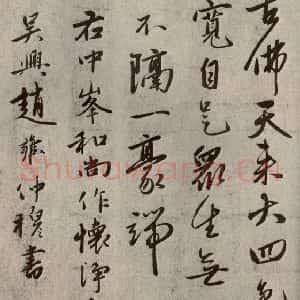 古佛天來大四
寬自是眾生無
不隔一豪端
右中峯和尚作懷淨
吳興趙雍仲穆書